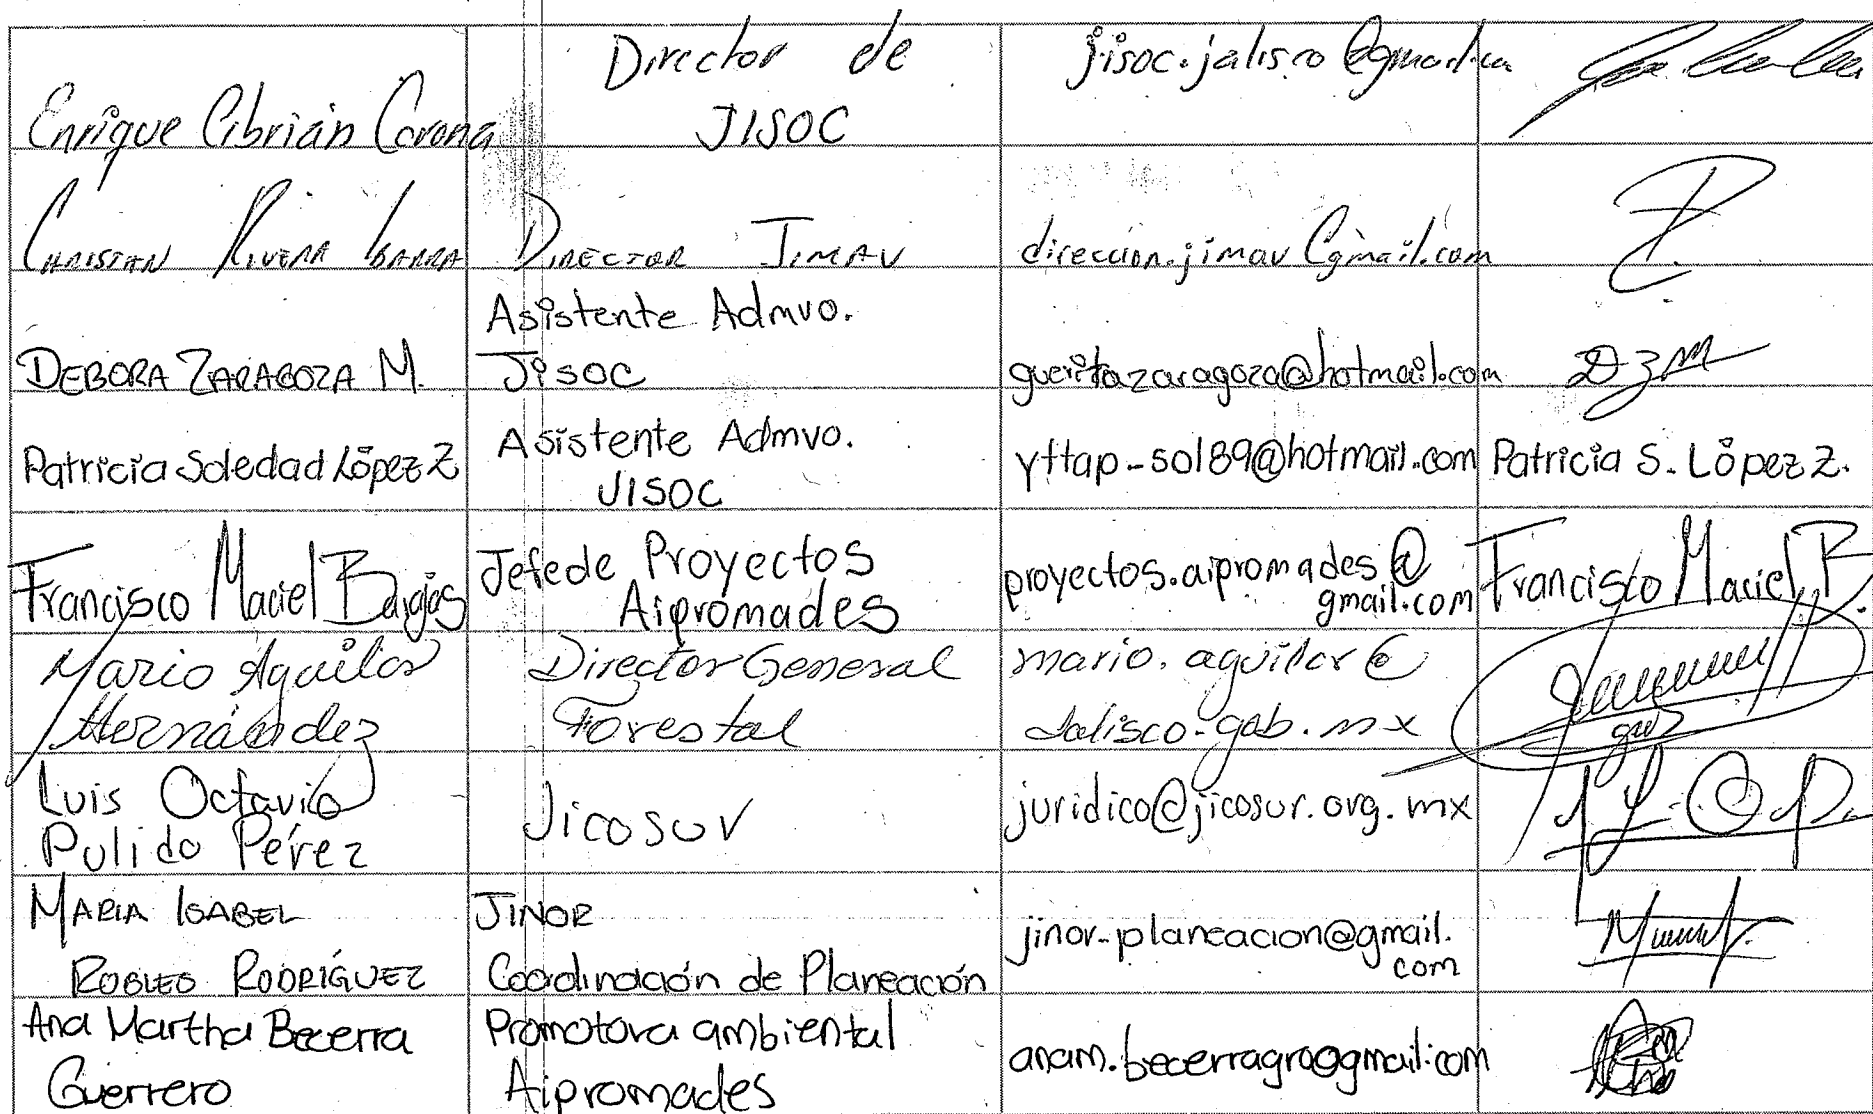 Enrique Cibrián Corona
Director de
JISOC
jisoc.jalisco@gmail.com
CHRISTIAN RIVERA IBARRA
DIRECTOR JIMAV
direccion.jimav@gmail.com
DEBORA ZARAGOZA M.
Asistente Admvo.
JISOC
gueritazaragoza@hotmail.com
DZM
Patricia Soledad López Z
Asistente Admvo.
JISOC
yttap-sol89@hotmail.com
Patricia S. López Z.
Francisco Maciel Barajas
Jefe de Proyectos
Aipromades
proyectos.aipromades@
gmail.com
Francisco Maciel B.
Mario Aguilar
Hernández
Director General
Forestal
mario.aguilar@
Jalisco.gob.mx
Luis Octavio
Pulido Pérez
Jicosur
juridico@jicosur.org.mx
MARIA ISABEL
ROBLES RODRÍGUEZ
JINOR
Coordinación de Planeación
jinor-planeacion@gmail.
com
Ana Martha Becerra
Guerrero
Promotora ambiental
Aipromades
anam.becerragro@gmail.com